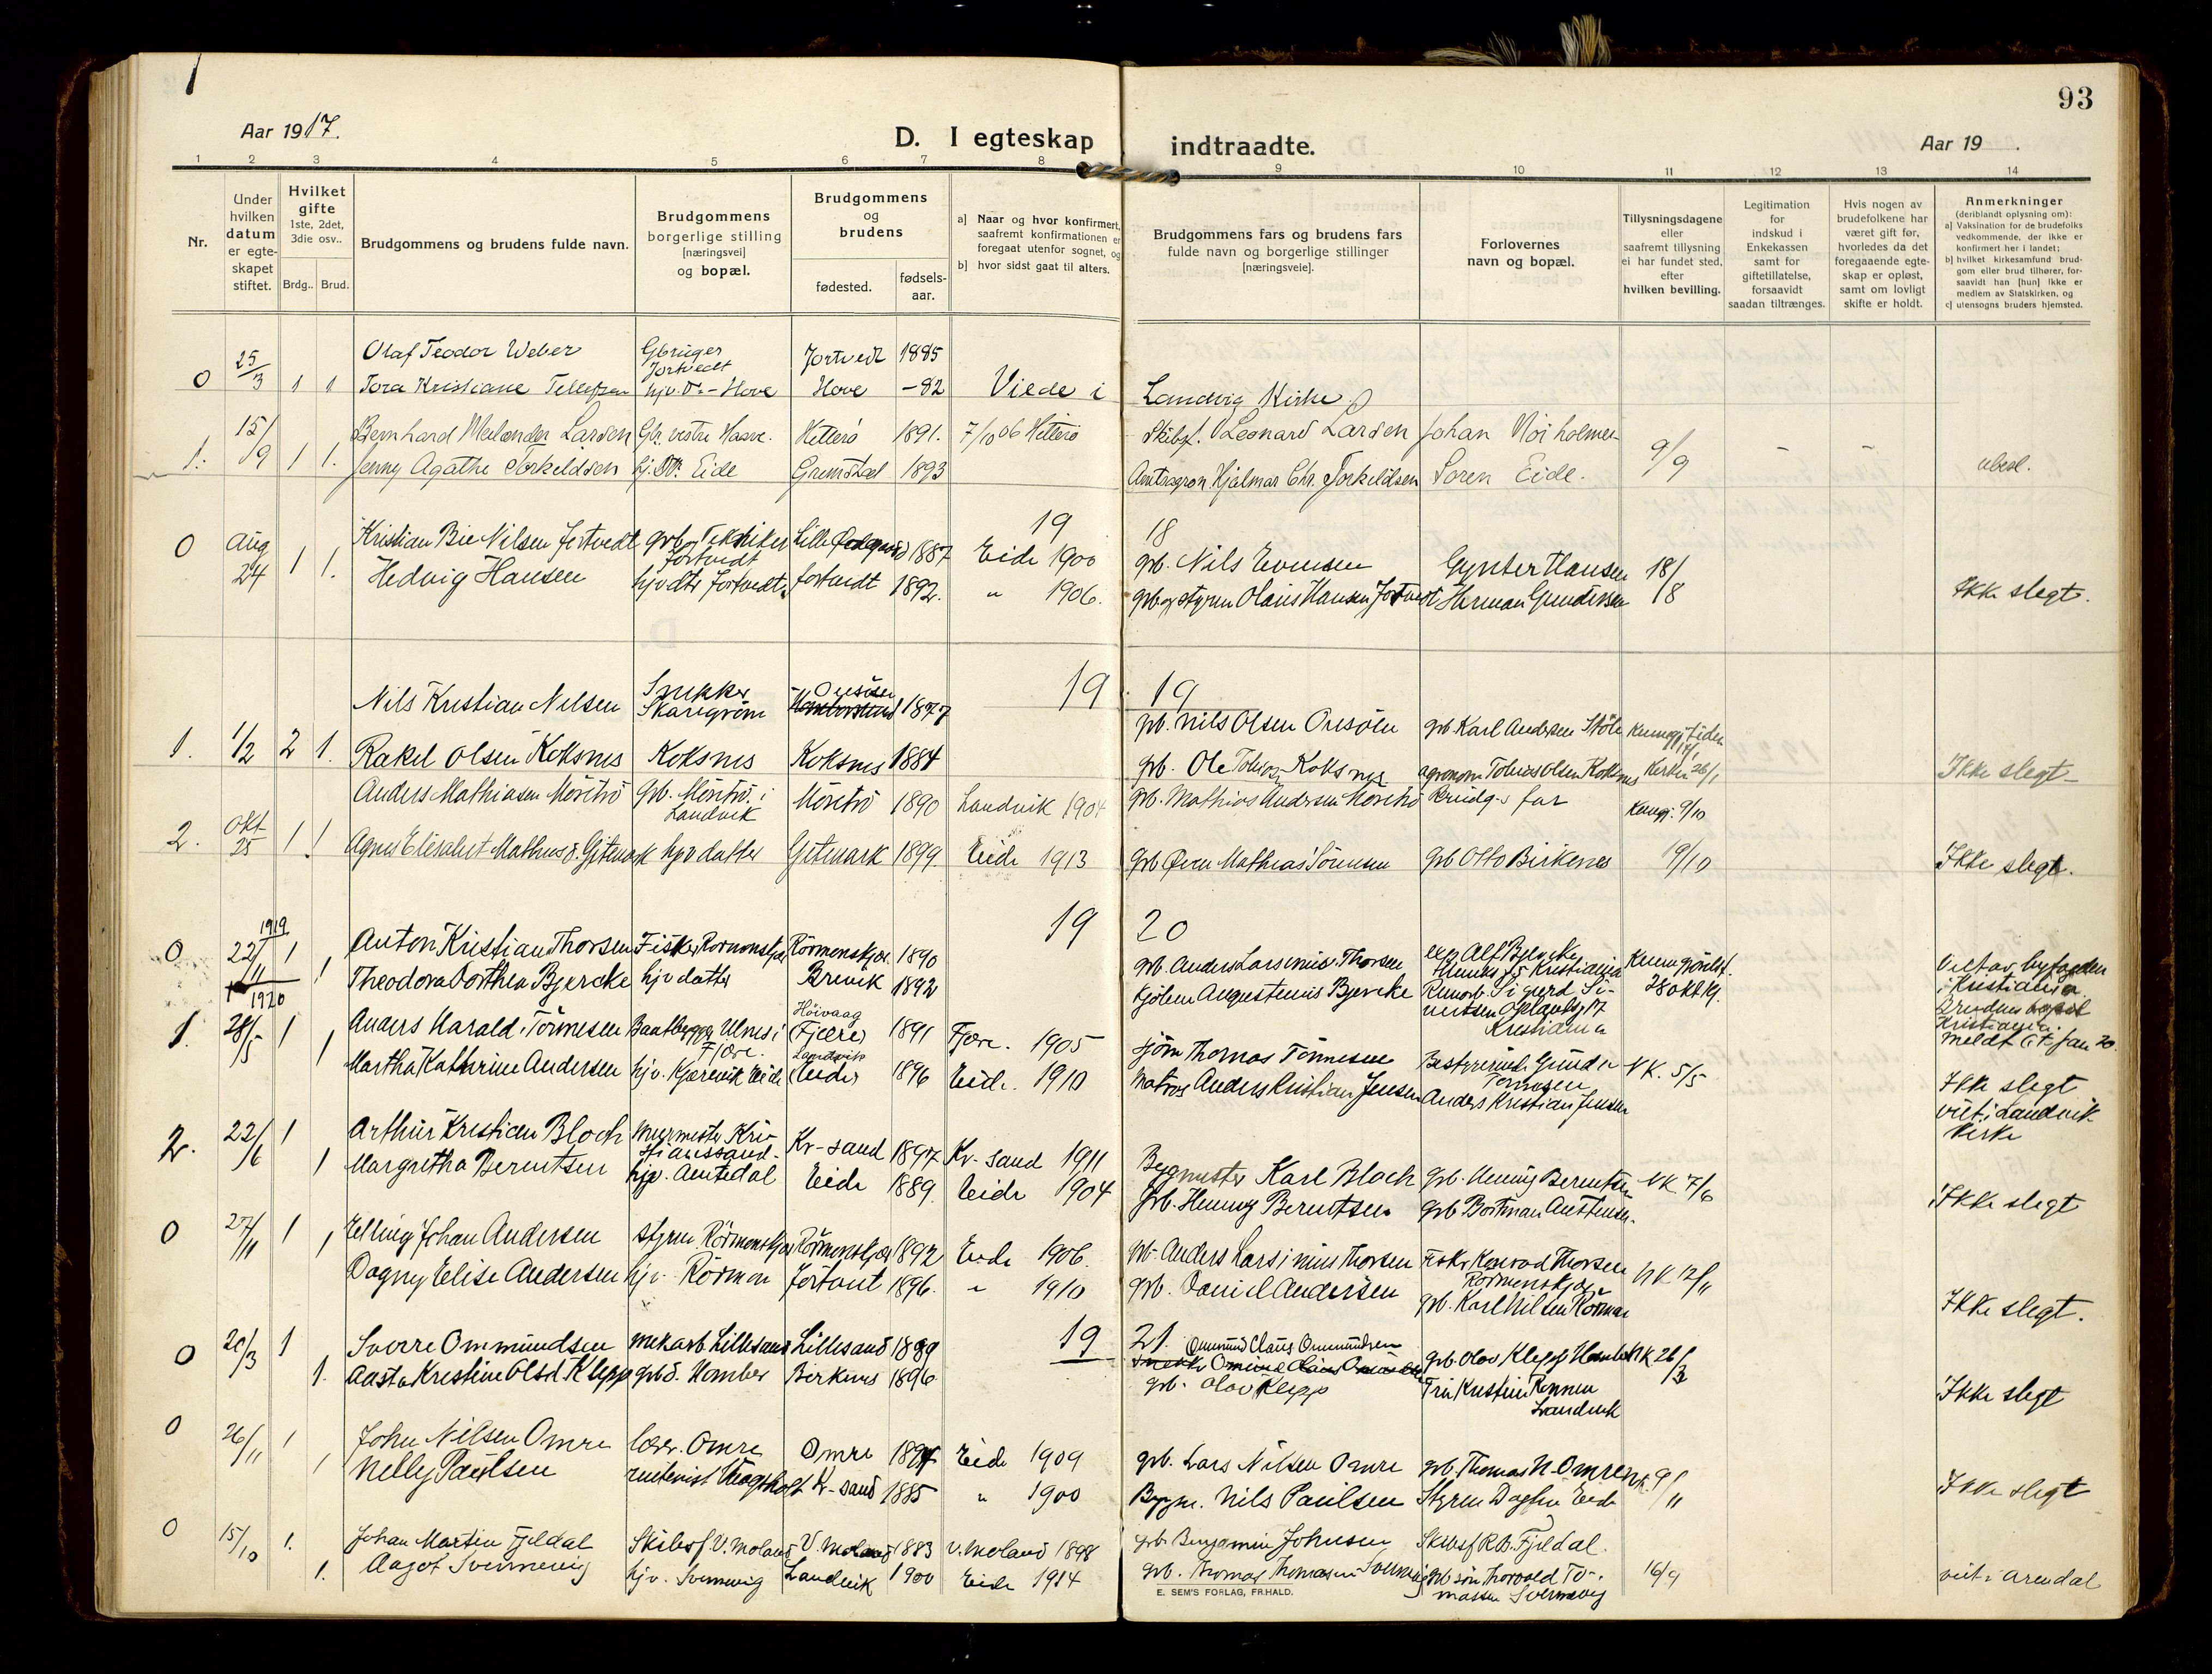 93
Aar 1917.
D. I egteskap indtraadte.
Aar 19 .
1 2 3 4 5 6 7 8 9 10 11 12 13 14
Nr.
Under hvilken datum er egte-skapet stiftet.
Hvilket gifte 1ste, 2det, 3die osv..
Brdg.. Brud.
Brudgommens og brudens fulde navn.
Brudgommens borgerlige stilling [næringsvei] og bopæl.
Brudgommens og brudens
fødested. fødsels-aar.
a] Naar og hvor konfirmert, saafremt konfirmationen er foregaat utenfor sognet, og
b] hvor sidst gaat til alters.
Brudgommens fars og brudens fars fulde navn og borgerlige stillinger [næringsveie].
Forlovernes navn og bopæl.
Tillysningsdagene eller saafremt tillysning ei har fundet sted, efter hvilken bevilling.
Legitimation for indskud i Enkekassen samt for giftetillatelse, forsaavidt saadan tiltrænges.
Hvis nogen av brudefolkene har været gift før, hvorledes da det foregaaende egte-skap er opløst, samt om lovligt skifte er holdt.
Anmerkninger (deriblandt oplysning om):
a] Vaksination for de brudefolks vedkommende, der ikke er konfirmert her i landet;
b] hvilket kirkesamfund brud-gom eller brud tilhører, for-saavidt han [hun] ikke er medlem av Statskirken, og
c] utensogns bruders hjemsted.
0 25/3 1 1 Olaf Teodor Weber Gbruger Jortvedt Jortvedt 1885
Tora Kristiane Tellefsen hjv. D. - Hove Hove -82 Viede i Landvig Kirke
1. 15/9 1 1. Bernhard Larsen Gbr. vestre Hitterø 1891. 7/10 06 Hitterø Skibsf. Leonard Larsen Johan 9/9 - -
Jenny Agathe Torkildsen hj. Dtr. Eide Grimstad 1893 Hjalmar Chr. Torkildsen Soren Eide. ubesl.
19 18
0 Aug 24 1 1. Kristian Bie Nilsen Jortvedt grb og Jortvedt Lille 1887 Eide 1900 grb. Nils Evensen Gynter Hansen 18/8
Hedvig Hansen hjv dtr Jortvedt. Jortvedt 1892. " 1906. grb og styrm Olaus Hansen Jortvedt Herman Gundersen Ikke slegt.
19 19
1. 1/2 2 1. Nils Kristian Nilsen Snekker Skaregrøm 1877 grb. Nils Olsen grb Karl Andersen
Rakel Olsen Koksnes Koksnes Koksnes 1884 grb. Ole Tobias Koksnes agronom Tobias Olsen Koksnes Kirken 26/1 Ikke slegt
2. Okt 25 1 1 Anders Mathiasen Møretrø Grb. Møretrø i Landvik Møretrø 1890 Landvik 1904 grb. Mathias Andersen Møretrø Brudg-s far Kungj: 9/10
Agnes Elisabet Mathias d. Gitmark hjv datter Gitmark 1899 Eide 1913 grb Mathias Sørensen grb Otto Birkenes 19/10 Ikke slegt.
19 20
0 1919 22/11 1 1 Anton Kristian Thorsen Fisker Rørmenskjær 1890 grb. Anders Larsinus Thorsen Alf Bjercke Kristiania
Theodora Dorthea Bjercke hjv datter Brevik 1892 Augustinus Bjercke Sigurd 28 okt 19. Viet av byfogden i Kristiania
Kristiania
1920
1. 28/5 1 1 Anders Harald Tønnesen Baatbygger Ulnes i Fjære. Høivaag (Fjære) 1891 Fjære. 1905 Thomas Tønnesen Tønnesen NK. 5/5
Martha Kathrine Andersen hjv. Kjærevik Eide Landvik Eide 1896 Eide. 1910 Matros Anders Kristian Jensen Anders Kristian Jensen Ikke slegt viet i Landvik Kirke
2. 22/6 1 1 Arthur Kristian Bloch Murmester Kristianssand. Kr-sand 1897 Kr-sand 1911 Bygmester Karl Bloch grb. Henning Berentsen NK 7/6
Margretha Berentsen hjv. Eide 1889. Eide 1904 grb. Henning Berentsen Ikke slegt
0 27/11 1 1 Elling Johan Andersen styrm. Rørmenskjær Rørmenskjær 1892 Eide 1906. grb. Anders Larsinius Thorsen Fisker Konrad Thorsen Rørmenskjær NK 12/11
Dagny Elise Andersen hjv. Rørmen 1896. " 1910 grb. Daniel Andersen grb. Karl Nilsen Rørmen Ikke slegt.
19 21.
0 20/3 1 1. Sverre Ommundsen mek arb Lillesand Lillesand 1889 Ommund Claus Ommundsen grb. Olav Klepp NK 26/2
Aasta Kristine Olsd Klepp grb d. Birkenes 1896 grb. Olav Klepp Landvik Ikke slegt
0 26/11 1 1 John Nilsen Omre lærer. Omre Omre 1894 Eide 1909 grb. Lars Nilsen Omre grb. Thomas N. Omre NK. 9/11
Nelly Paulsen Kr-sand 1885 " 1900 Bygm. Nils Paulsen Styrm Eide Ikke slegt
0 15/10 1. 1. Johan Martin Fjeldal Skibsf V. Moland V. Moland 1883 V. Moland 1898 grb Benjamin Johnsen Skibsf R. B. Fjeldal.
Aagot Svennevig hjv. Svennevig Landvik 1900 Eide 1914 grb. Thomas Thomassen Svennevig grb søn Thorvald Tomassen Svennevig 16/9 viet i Arendal
E. SEM'S FORLAG, FR.HALD.